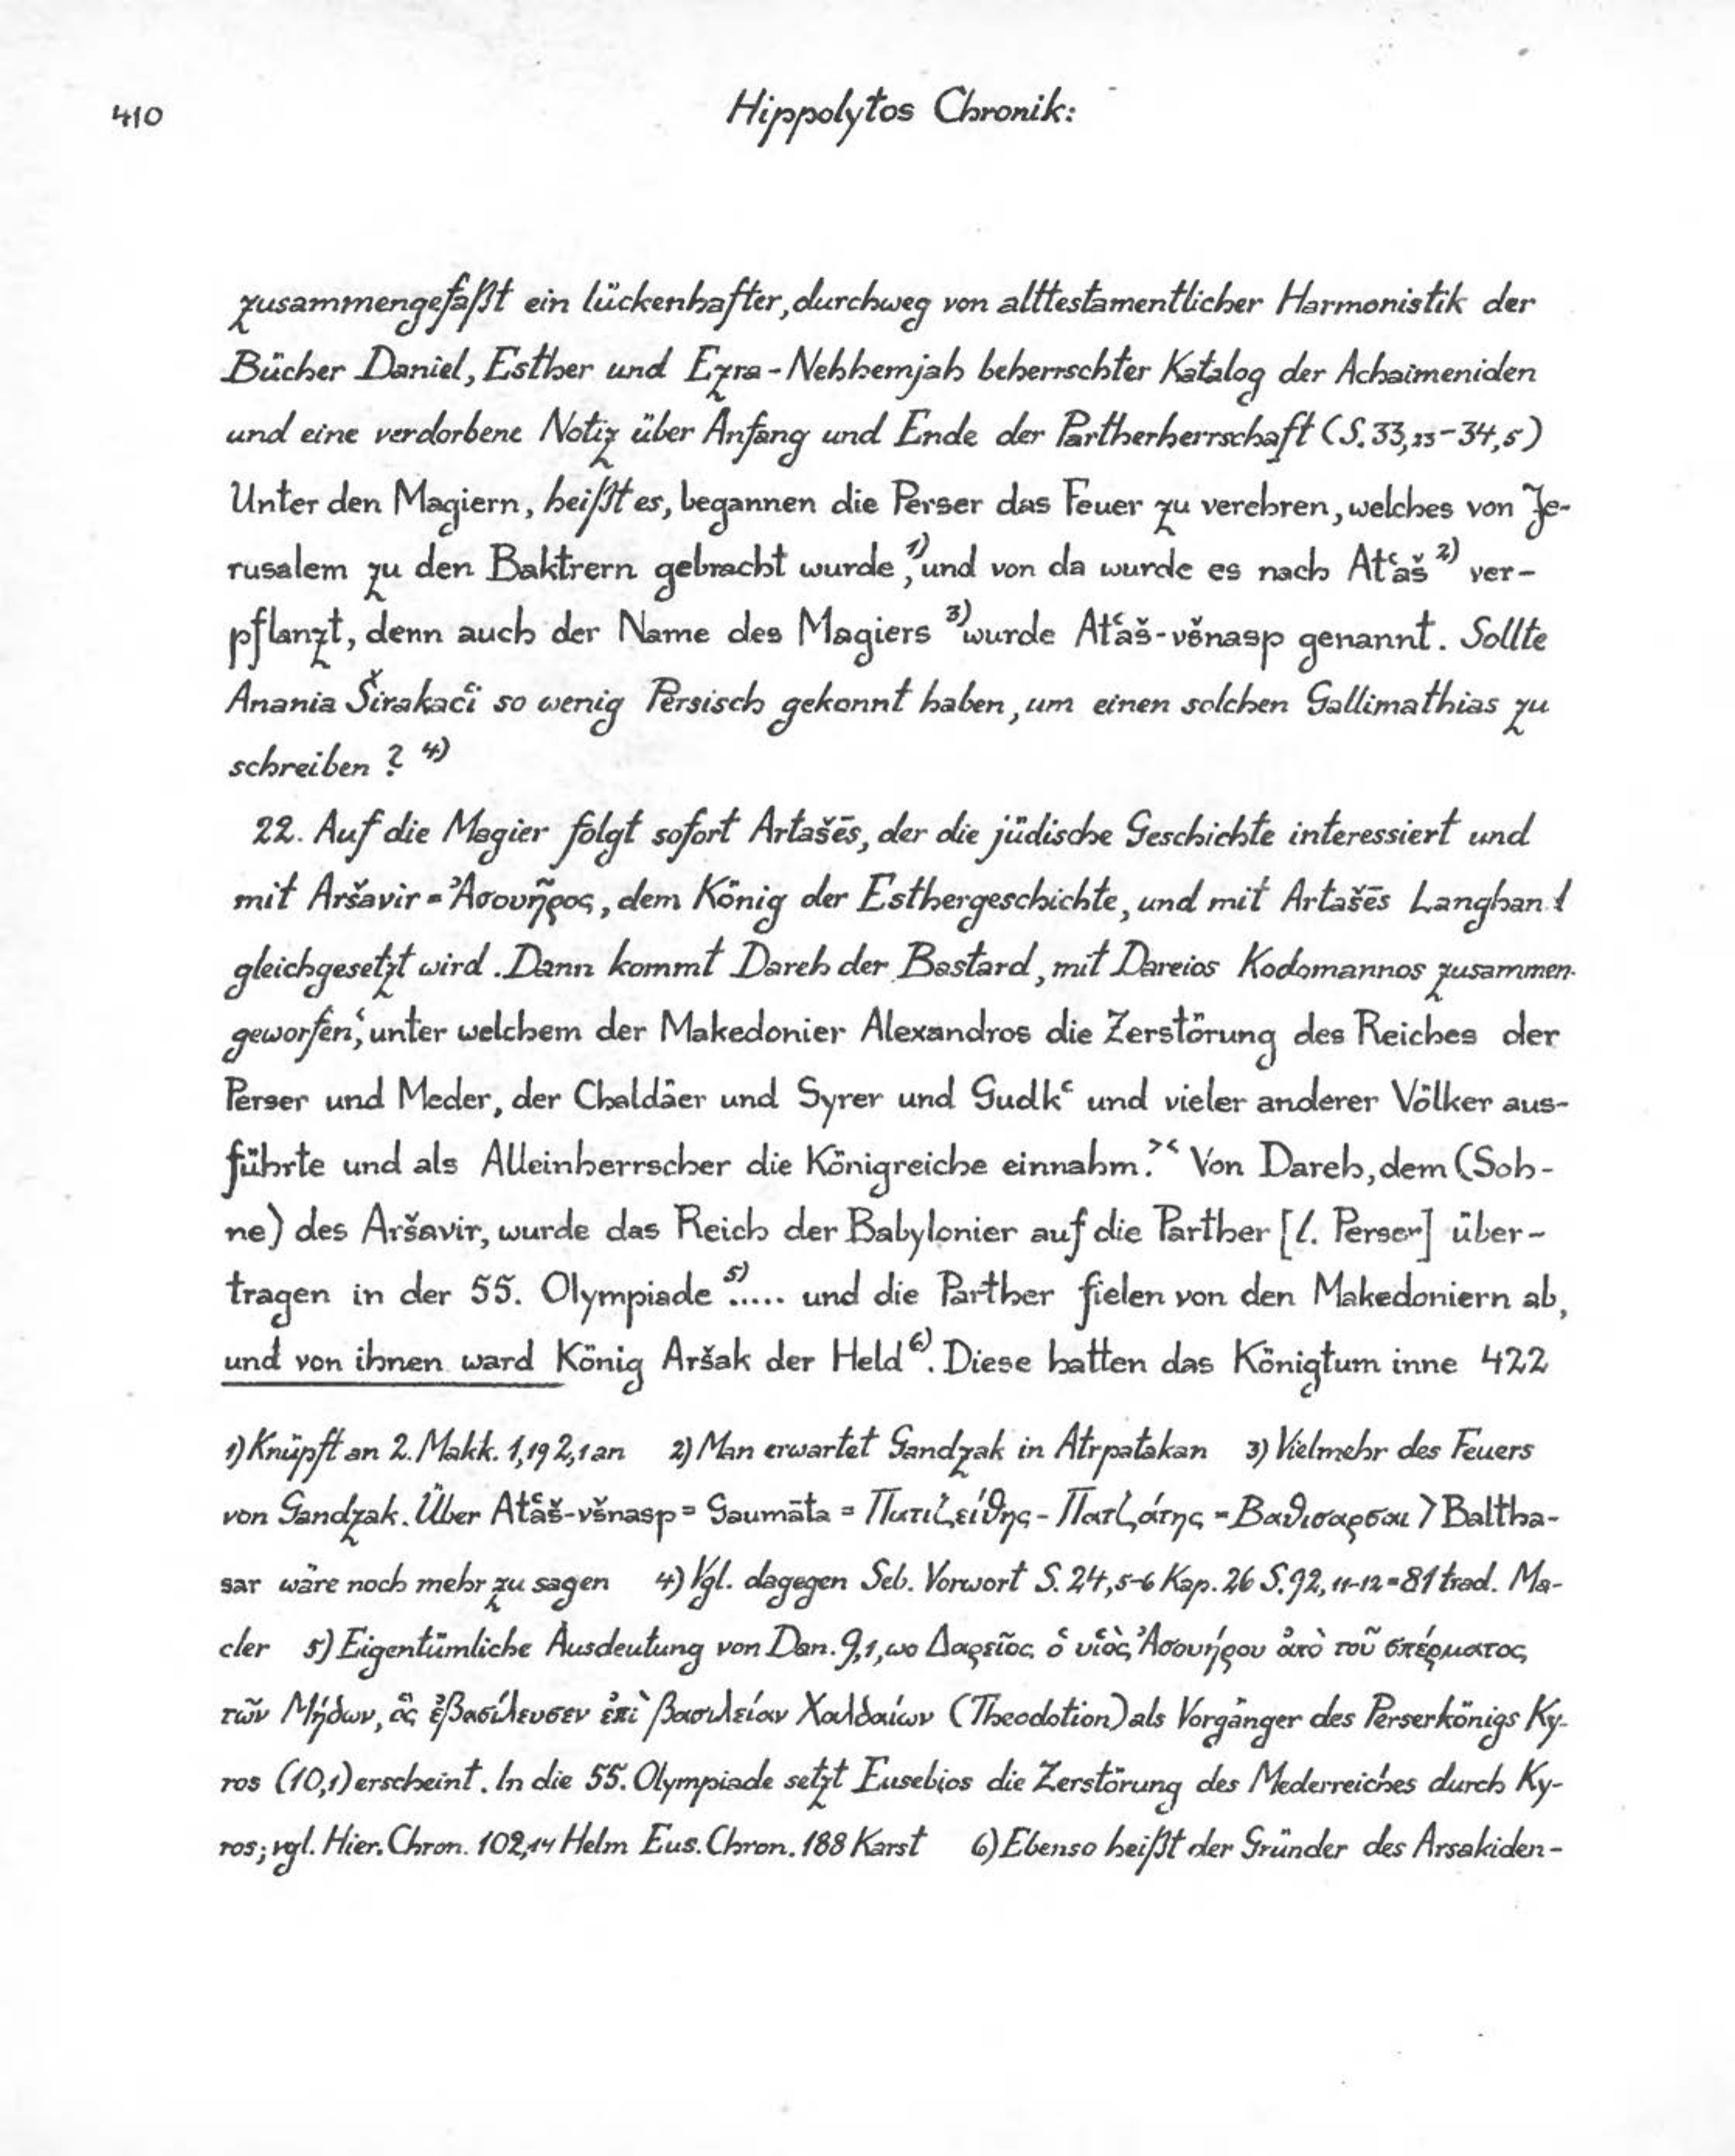 410
Hippolytos Chronik:
zusammengefaßt ein lückenhafter, durchweg von alttestamentlicher Harmonistik der
Bücher Daniel, Esther und Ezra-Nehhemjah beherrschter Katalog der Achaimeniden
und eine verdorbene Notiz über Anfang und Ende der Partherherrschaft (S. 33,23-34,5)
Unter den Magiern, heißt es, begannen die Perser das Feuer zu verehren, welches von Je-
rusalem zu den Baktrern gebracht wurde,1) und von da wurde es nach Atʿaš 2) ver-
pflanzt, denn auch der Name des Magiers 3) wurde Atʿaš-všnasp genannt. Sollte
Anania Širakacʿi so wenig Persisch gekonnt haben, um einen solchen Gallimathias zu
schreiben? 4)
22. Auf die Magier folgt sofort Artašēs, der die jüdische Geschichte interessiert und
mit Aršavir = Ἀσουῆρος, dem König der Esthergeschichte, und mit Artašēs Langhand
gleichgesetzt wird. Dann kommt Dareh der Bastard, mit Dareios Kodomannos zusammen-
geworfen,ʿ unter welchem der Makedonier Alexandros die Zerstörung des Reiches der
Perser und Meder, der Chaldäer und Syrer und Gudkʿ und vieler anderer Völker aus-
führte und als Alleinherrscher die Königreiche einnahm.ʾʿ Von Dareh, dem (Soh-
ne) des Aršavir, wurde das Reich der Babylonier auf die Parther [l. Perser] über-
tragen in der 55. Olympiade 5)..... und die Parther fielen von den Makedoniern ab,
und von ihnen ward König Aršak der Held 6). Diese hatten das Königtum inne 422
1) Knüpft an 2. Makk. 1,19 2,1 an 2) Man erwartet Gandzak in Atrpatakan 3) Vielmehr des Feuers
von Gandzak. Über Atʿaš-všnasp = Gaumāta = Πατιζείθης - Πατζάτης = Βαθισαρσαι > Baltha-
sar wäre noch mehr zu sagen 4) Vgl. dagegen Seb. Vorwort S. 24,5-6 Kap. 26 S. 92, 11-12 = 81 trad. Ma-
cler 5) Eigentümliche Ausdeutung von Dan. 9,1, wo Δαρεῖος ὁ υἱὸς Ἀσουήρου ἀπὸ τοῦ σπέρματος
τῶν Μήδων, ὃς ἐβασίλευσεν ἐπὶ βασιλείαν Χαλδαίων (Theodotion) als Vorgänger des Perserkönigs Ky-
ros (10,1) erscheint. In die 55. Olympiade setzt Eusebios die Zerstörung des Mederreiches durch Ky-
ros; vgl. Hier. Chron. 102,14 Helm Eus. Chron. 188 Karst 6) Ebenso heißt der Gründer des Arsakiden-